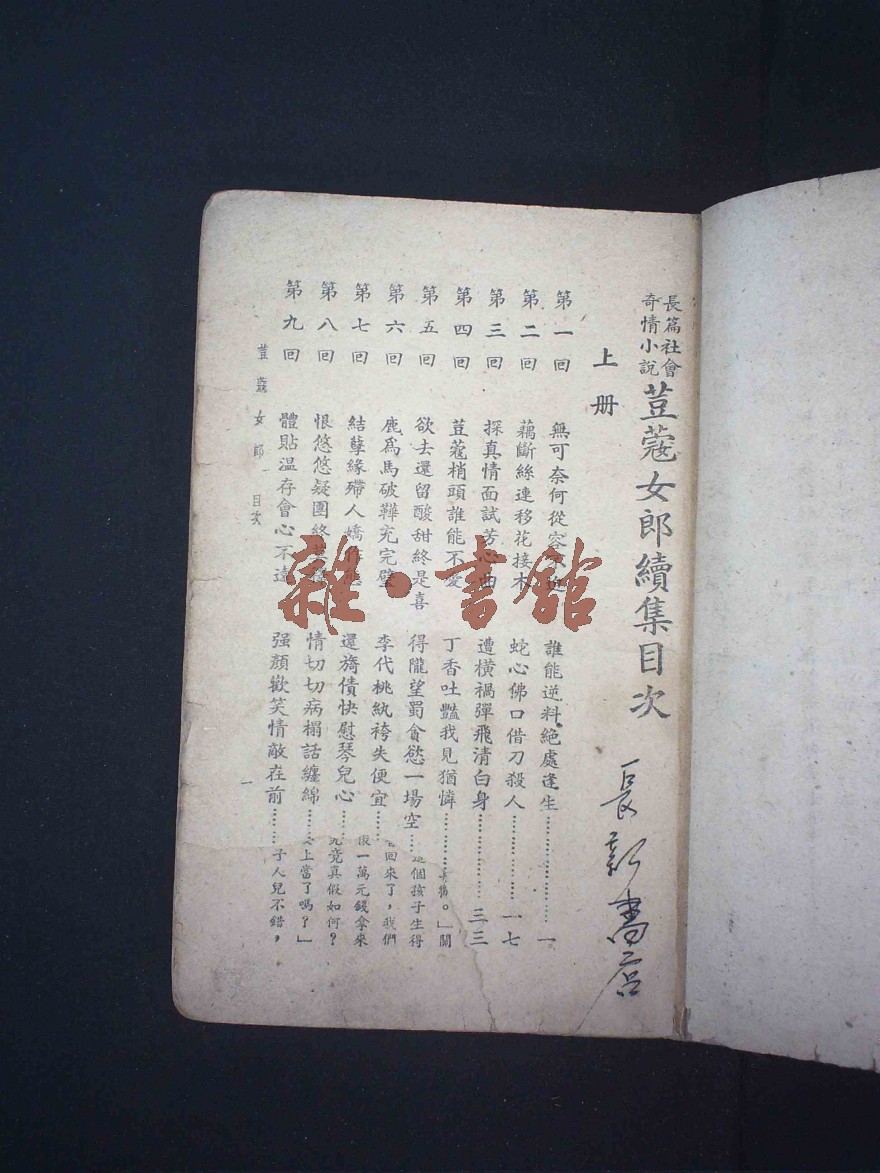 長篇社會
奇情小說
荳蔻女郎續集目次
長新書店
上册
第一回 無可奈何從容 誰能逆料絕處逢生…………一
第二回 藕斷絲連移花接木 蛇心佛口借刀殺人…………一七
第三回 探真情面試芳心曲 遭橫禍彈飛清白身…………三三
第四回 荳蔻梢頭誰能不愛 丁香吐豔我見猶憐…………
。」關
第五回 欲去還留酸甜終是喜 得隴望蜀貪慾一場空……
個孩子生得
第六回 鹿爲馬破鞾充完璧 李代桃紈袴失便宜……
回來了，我們
第七回 結孽緣殢人嬌 還旖債快慰琴兒心……
一萬元錢拿來
第八回 恨悠悠疑團終 情切切病榻話纏綿……
究竟真假如何？
第九回 體貼温存會心不遠 强顏歡笑情敵在前……
上當了嗎？」
子人兒不錯，
荳蔻女郎 目次
一
雜·書館